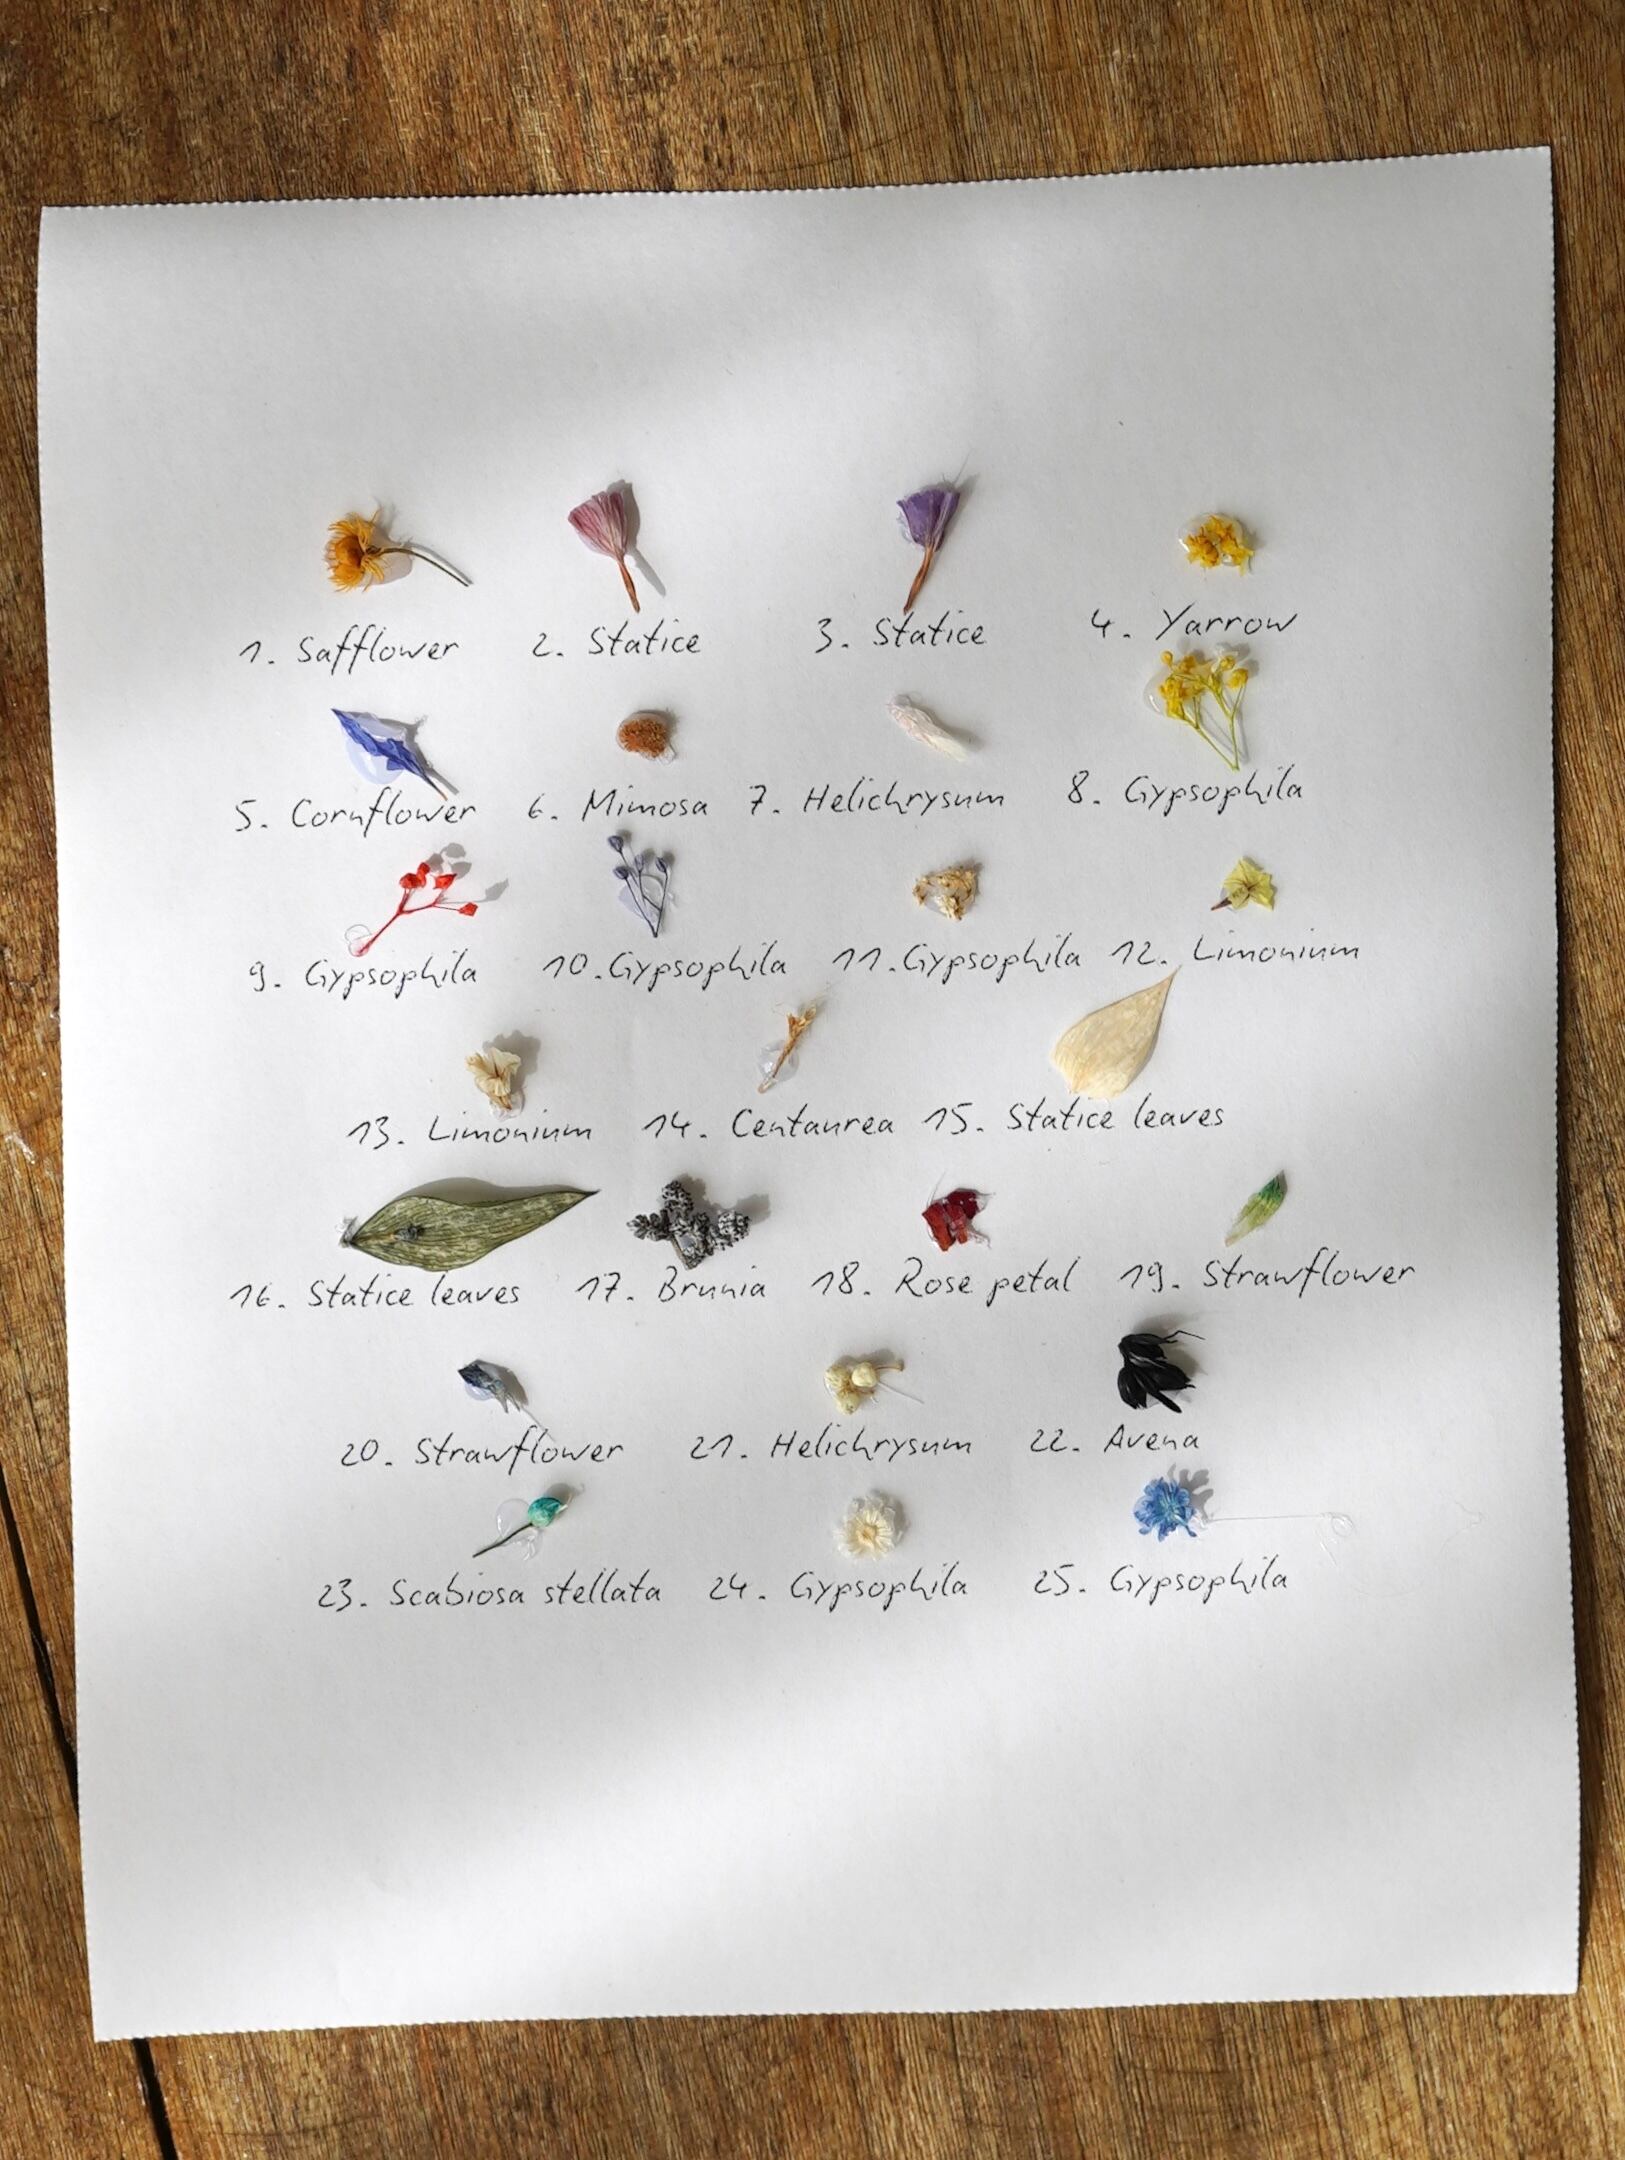 1. Safflower 2. Statice 3. Statice 4. Yarrow
5. Cornflower 6. Mimosa 7. Helichrysum 8. Gypsophila
9. Gypsophila 10. Gypsophila 11. Gypsophila 12. Limonium
13. Limonium 14. Centaurea 15. Statice leaves
16. Statice leaves 17. Brunia 18. Rose petal 19. Strawflower
20. Strawflower 21. Helichrysum 22. Avena
23. Scabiosa stellata 24. Gypsophila 25. Gypsophila